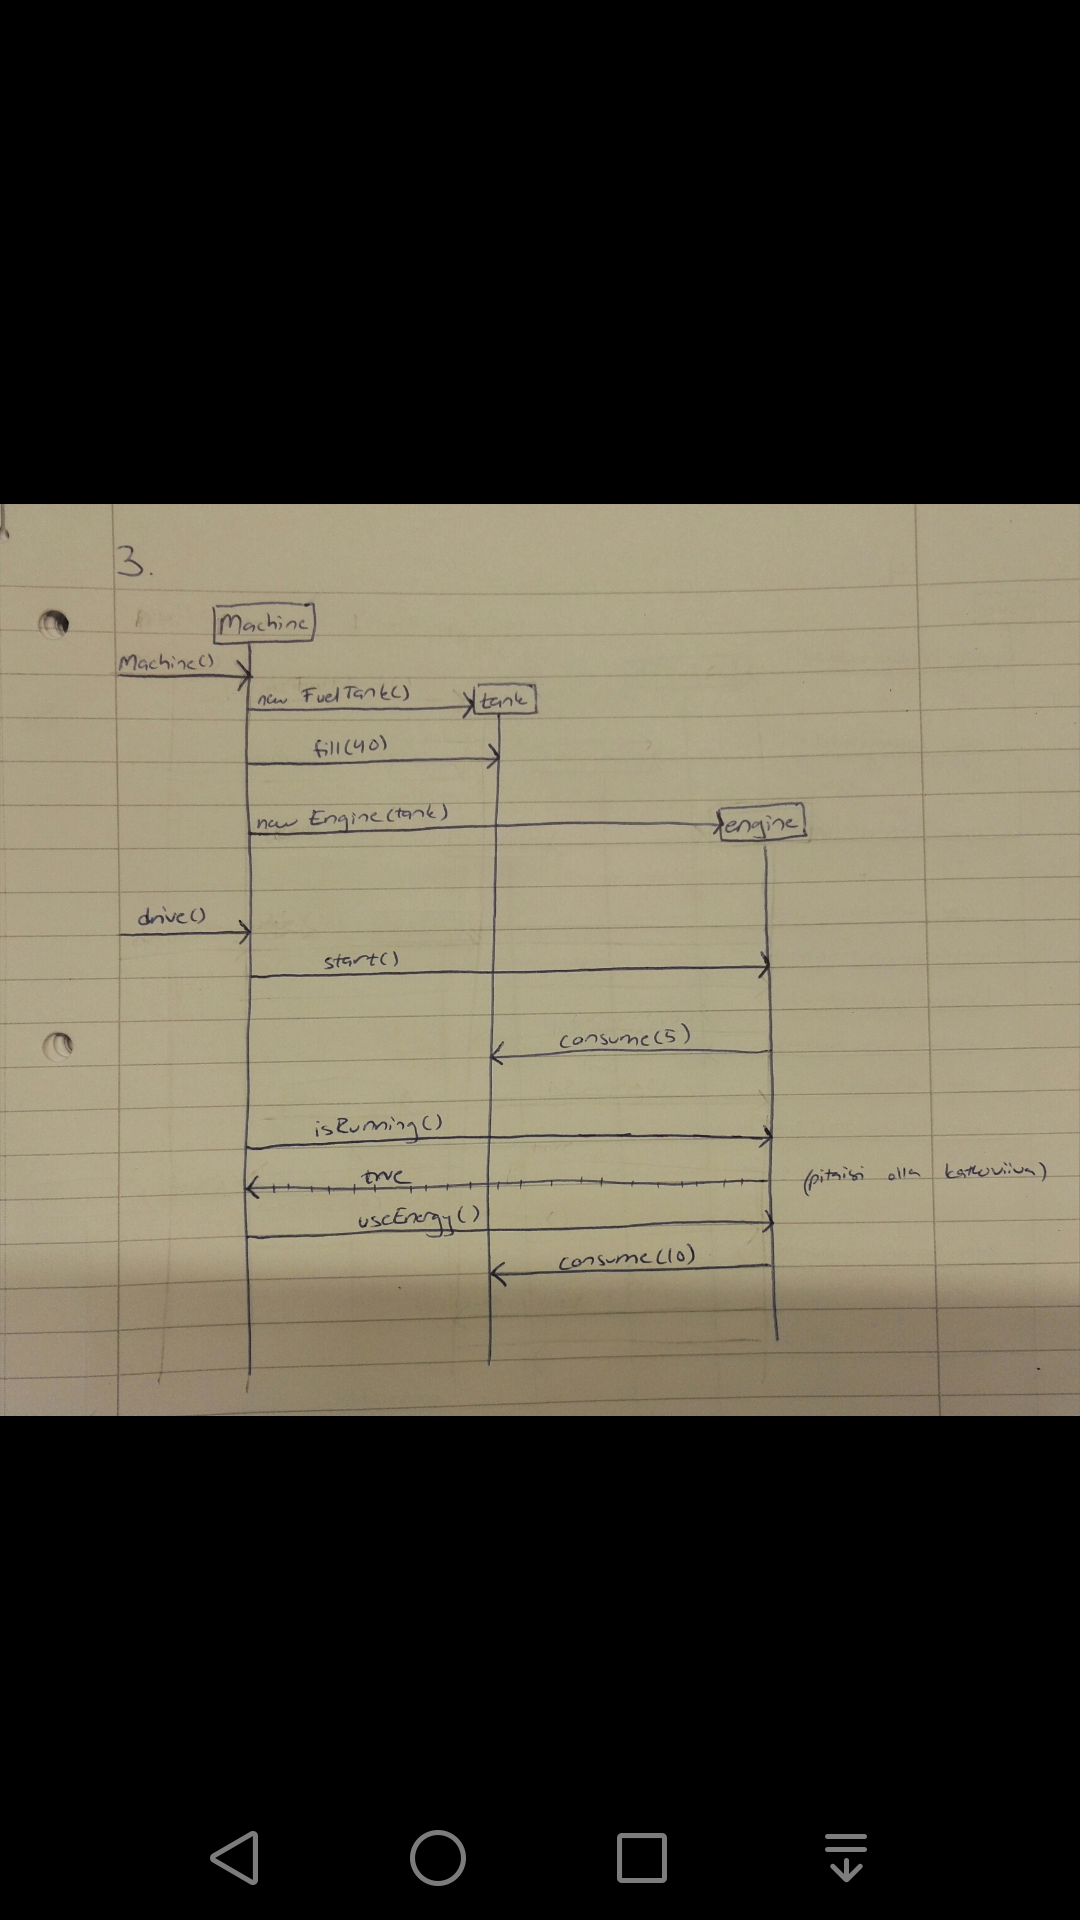 3.
Machine
Machine()
new FuelTank()
tank
fill(40)
new Engine(tank)
engine
drive()
start()
consume(5)
isRunning()
true
(pitäisi olla katkoviiva)
useEnergy()
consume(10)